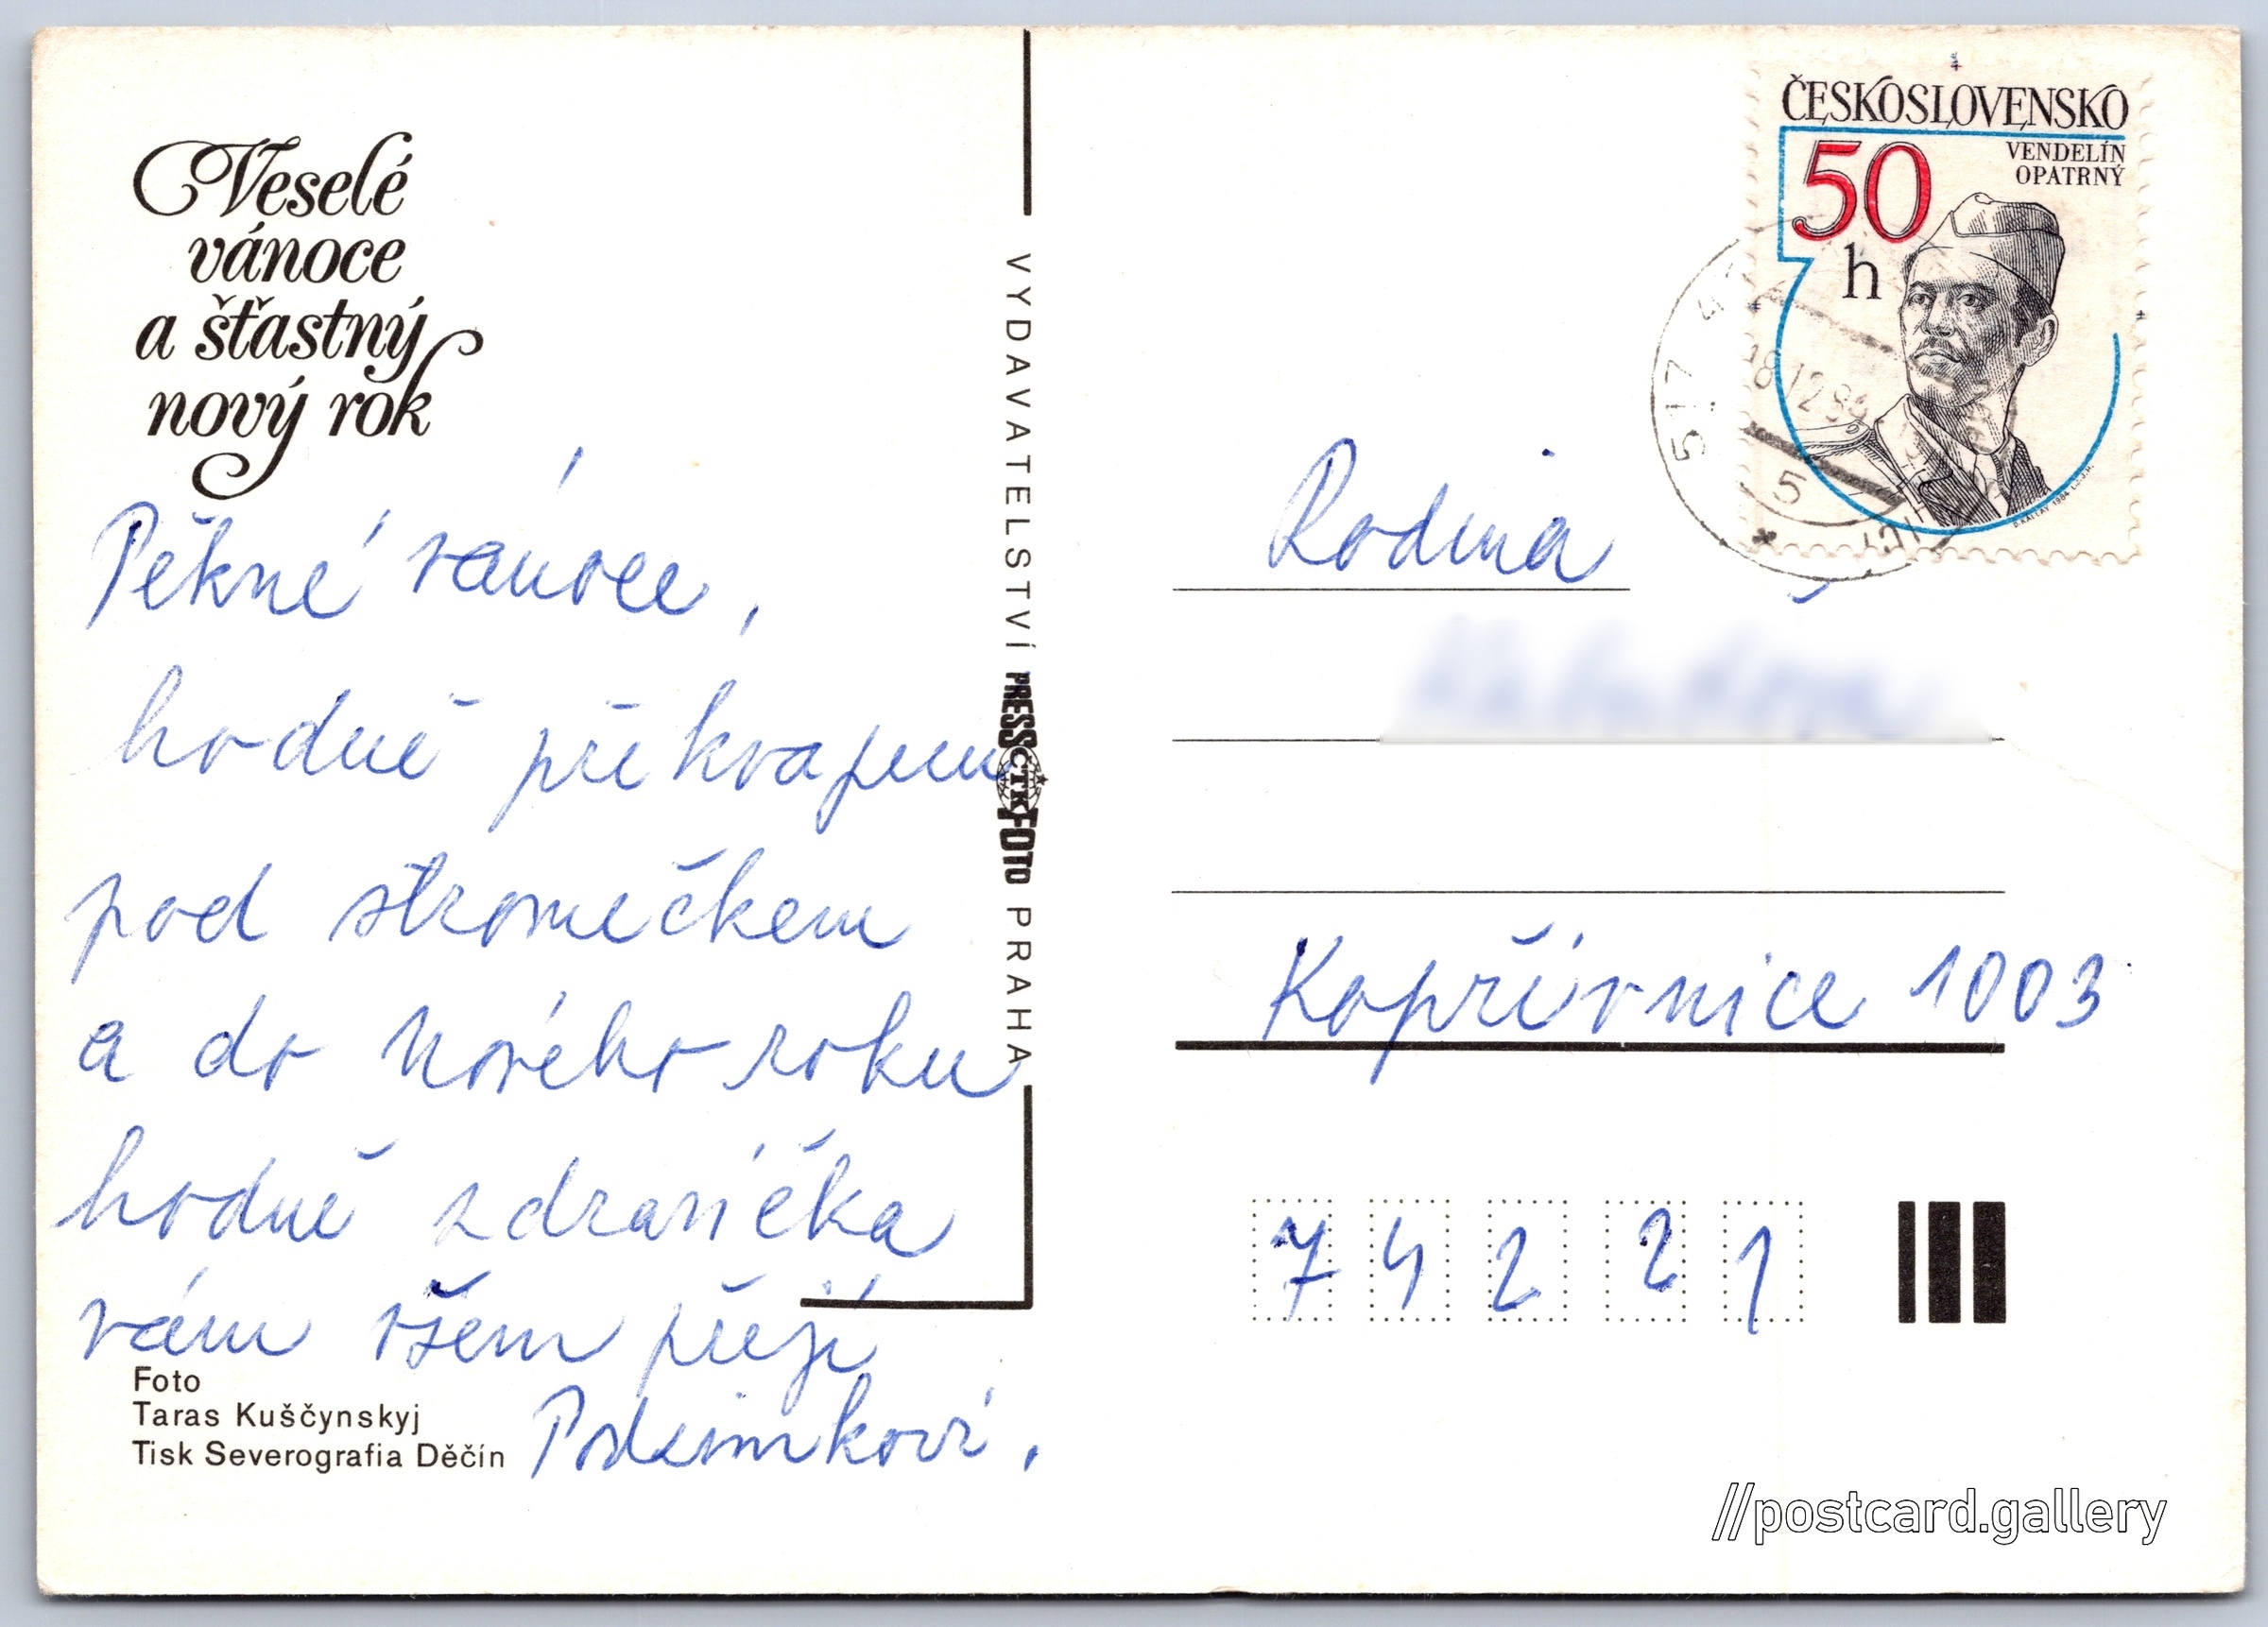 Veselé
vánoce
a šťastný
nový rok
Pěkné vánoce,
hodně překvapení
pod stromečkem
a do Nového roku
hodně zdravíčka
vám všem přejí
Podzimkovi.
Foto
Taras Kuščynskyj
Tisk Severografia Děčín
VYDAVATELSTVÍ PRESSFOTO PRAHA
ČTK
ČESKOSLOVENSKO
50
h
VENDELÍN
OPATRNÝ
Rodina
Kopřivnice 1003
742 21
//postcard.gallery